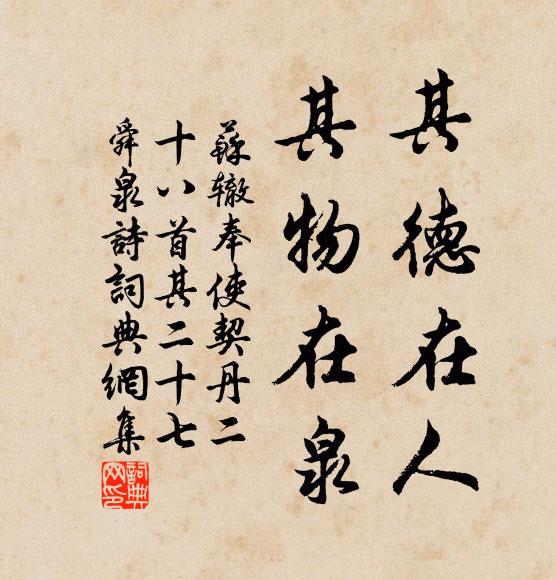 其德在人
其物在泉
蘇辙奉使契丹二
十八首其二十七
舜泉詩詞典網集
詞典網印